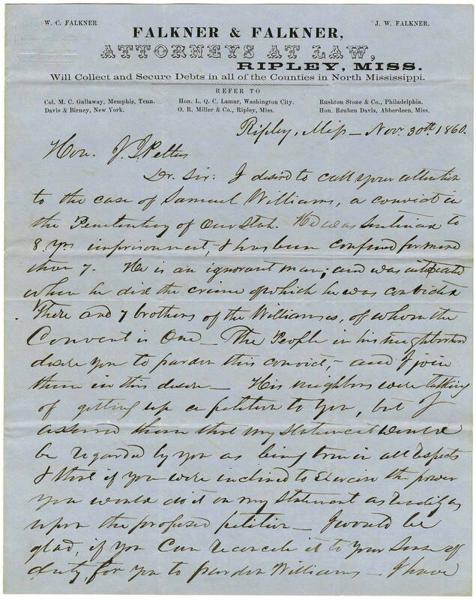 W. C. FALKNER. J. W. FALKNER.
FALKNER & FALKNER,
ATTORNEYS AT LAW,
RIPLEY, MISS.
Will Collect and Secure Debts in all of the Counties in North Mississippi.
REFER TO
Col. M. C. Gallaway, Memphis, Tenn. Hon. L. Q. C. Lamar, Washington City. Rushton Stone & Co., Philadelphia.
Davis & Birney, New York. O. R. Miller & Co., Ripley, Miss. Hon. Reuben Davis, Aberdeen, Miss.
Ripley, Miss - Nov 30th 1860.
Hon. J. J Pettus
Dr. Sir: I desire to call your attention
to the case of Samuel Williams, a convict in
the Penitentiary of our State. He was sentenced to
8 yrs imprisonment, & has been confined for more
than 7. He is an ignorant man; and was intoxicated
when he did the crime of which he was convicted
There are 7 brothers of the Williamses, of whom the
Convict is one - The People in his neighborhood
desire you to pardon this convict, - and I join
them in this desire - His neighbors were talking
of getting up a petition to you, but I
assured them that my statement would
be regarded by you as being true in all respects
& that if you were inclined to exercise the power
you would do it on my statement as readily as
upon the proposed petition - I would be
glad, if you can reconcile it to your sense of
duty, for you to pardon Williams - I have